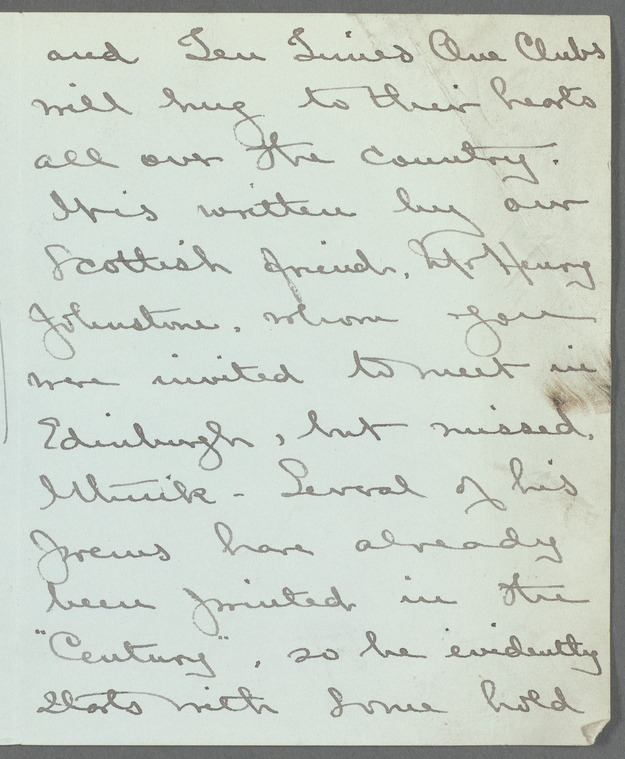 and Ten Times One Clubs
will hug to their hearts
all over the country.
It is written by our
Scottish friend, Mr Henry
Johnstone, whom you
were invited to meet in
Edinburgh, but missed,
I think - Several of his
poems have already
been printed in the
"Century", so he evidently
starts with some hold